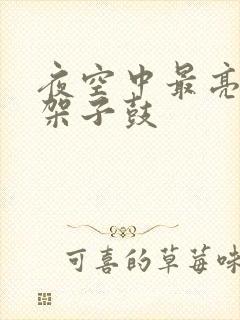 夜空中最亮
架子鼓
可喜的草莓味